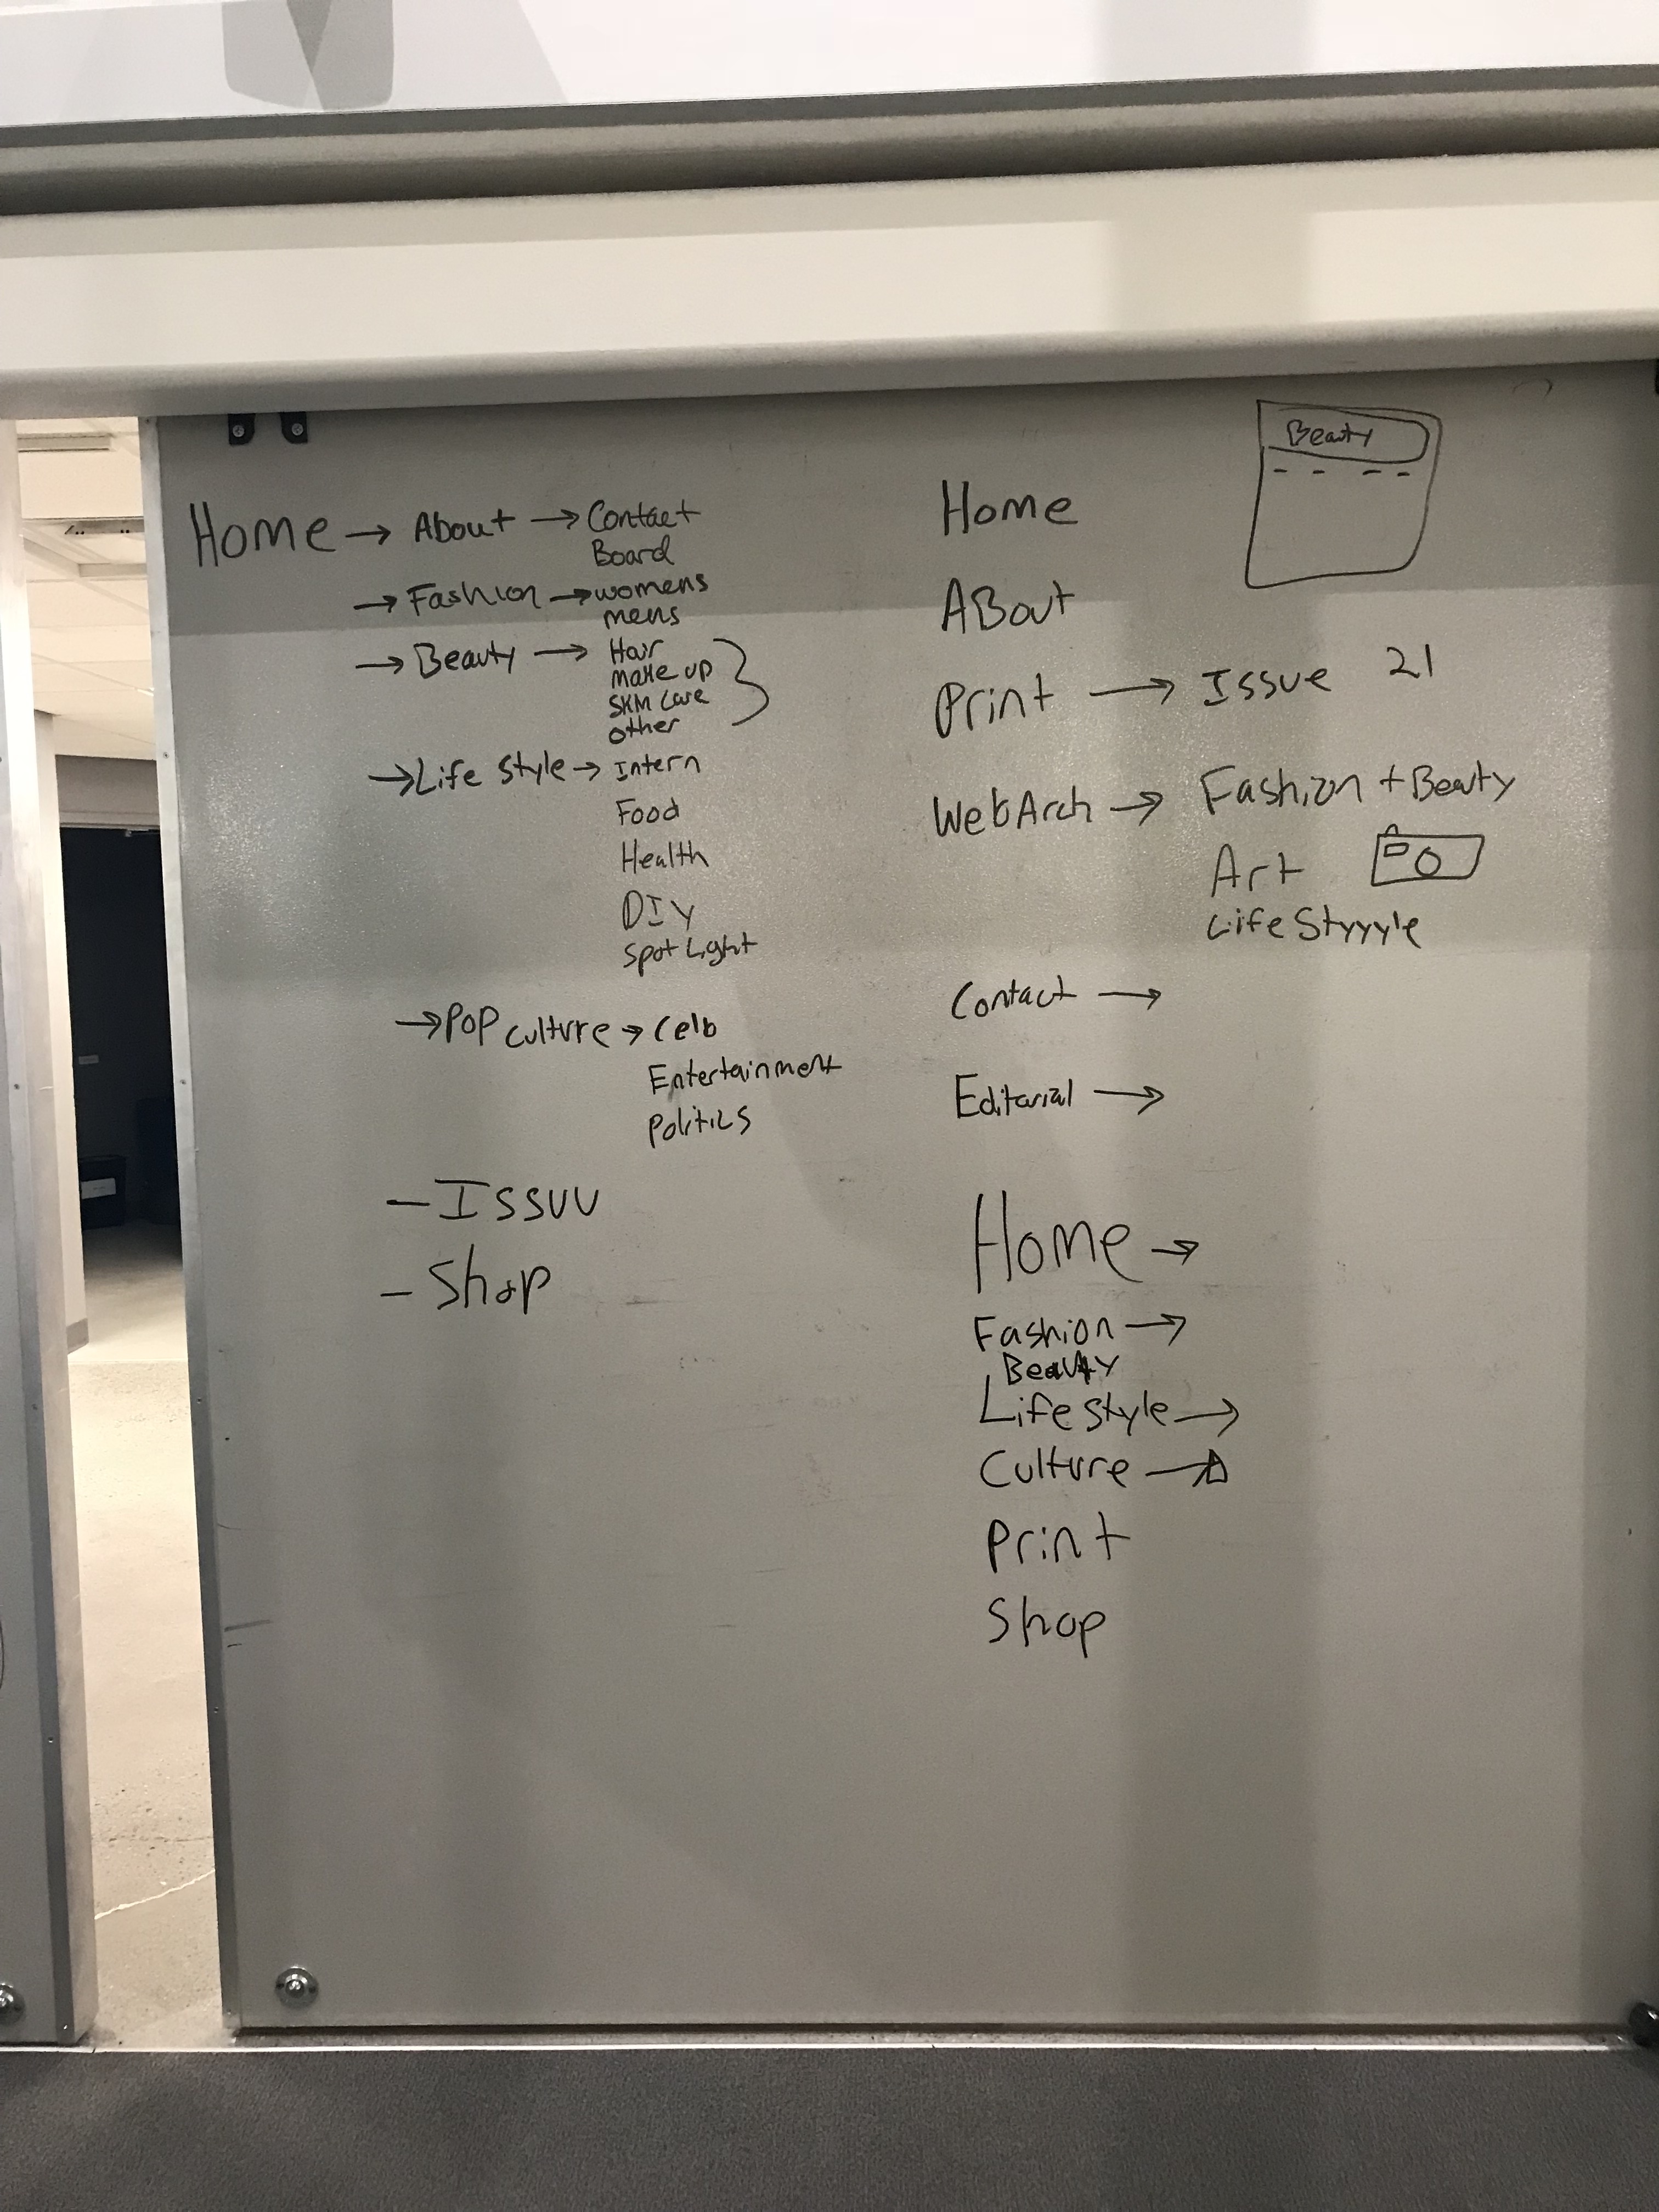 Home → About → Contact
Board
→ Fashion → womens
mens
→ Beauty → Hair
make up
Skin Care
other
→ Life Style → Intern
Food
Health
DIY
Spot Light
→ Pop culture → Celb
Entertainment
Politics
- Issuu
- Shop
Beauty
Home
ABout
Print → Issue 21
Web Arch → Fashion + Beauty
Art
Life Styyyle
Contact →
Editorial →
Home →
Fashion →
Beauty
Life style →
Culture →
Print
Shop